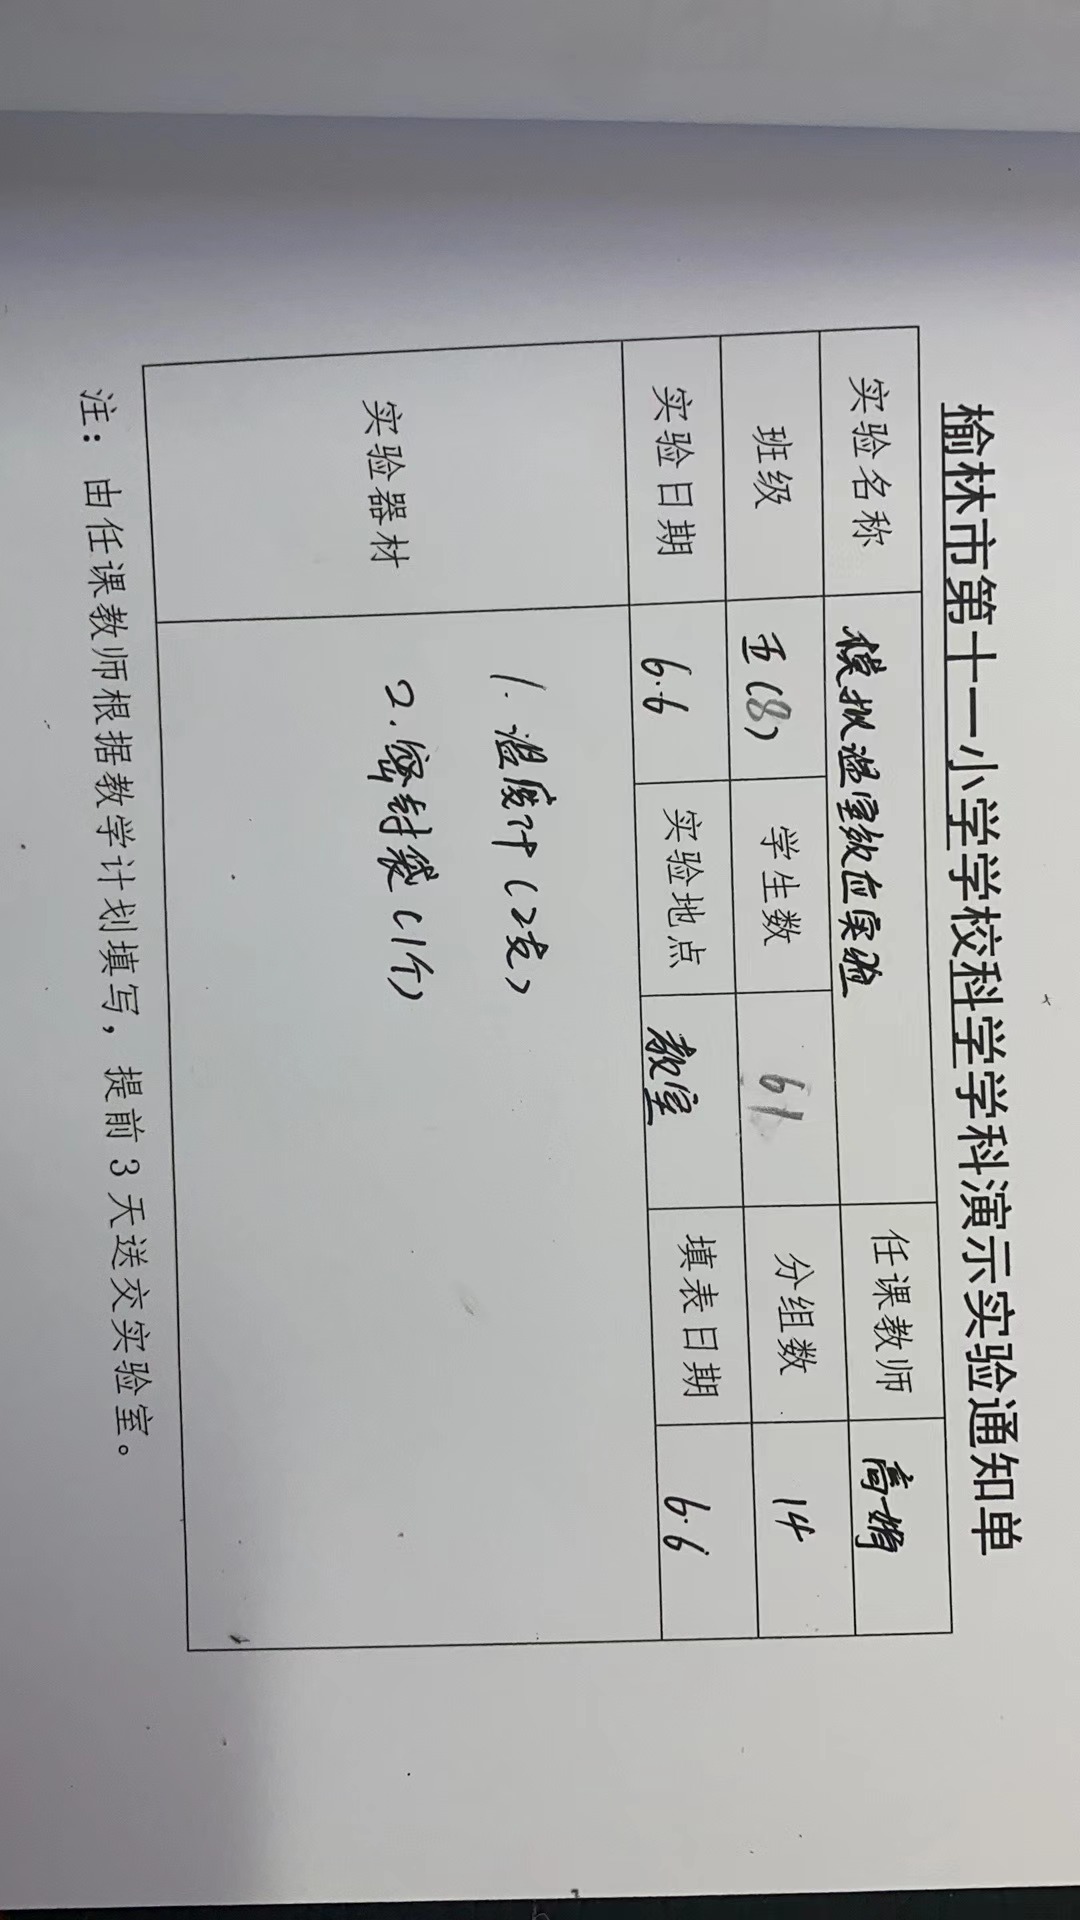 榆林市第十一小学学校科学学科演示实验通知单
实验名称 模拟温室效应实验 任课教师 高娟
班级 五(8) 学生数 61 分组数 14
实验日期 6.6 实验地点 教室 填表日期 6.6
实验器材 1. 温度计(2支)
2. 密封袋(1个)
注：由任课教师根据教学计划填写，提前3天送交实验室。